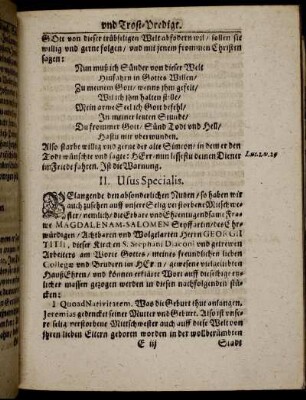 und Trost-Predigt.
GOtt von dieser trübseligen Welt abfodern wil / sollen sie
willig und gerne folgen / und mit jenem frommen Christen
sagen:
Nun muß ich Sünder von dieser Welt
Hinfahrn in Gottes Willen /
Zu meinem Gott / wenns ihm gefelt /
Wil ich ihm halten stille /
Mein arme Seel ich Gott befehl /
In meiner letzten Stunde /
Du frommer Gott / Sünd Todt und Hell /
Hastu mir überwunden.
Also starbe willig und gerne der alte Simeon / in dem er den
Todt wünschte und sagte: HErr nun lässestu deinen Diener
im Friede fahren. Ist die Warnung.
Luc. 2. v. 29
II. Usus Specialis.
BElangende den absonderlichen Nutzen / so haben wir
auch zusehen auff unsere Selig verstorbene Mitschwe-
ster / nemlich / die Erbare und Ehrentugendsame Frau
MAGDALENAM-SALOMEN
würdigen / Achtbaren und Wolgelarten Herrn GEORGII
TITII, dieser Kirchen S. Stephani Diaconi und getreuen
Arbeiters am Worte Gottes / meines freundlichen lieben
Collegæ und Brudern im HErrn / gewesene vielgeliebte
HaußEhre / und können erklärte Wort auff dieselbe
licher massen gezogen werden in diesen nachfolgenden stü-
cken:
1. Quoad Nativitatem. Was die Geburt thut anfangen.
Jeremias gedencket seiner Mutter und Geburt. Also ist unse-
re selig verstorbene Mitschwester auch auff diese Welt von
ihren lieben Eltern geboren worden in der wolberümbten
E iij
Stadt